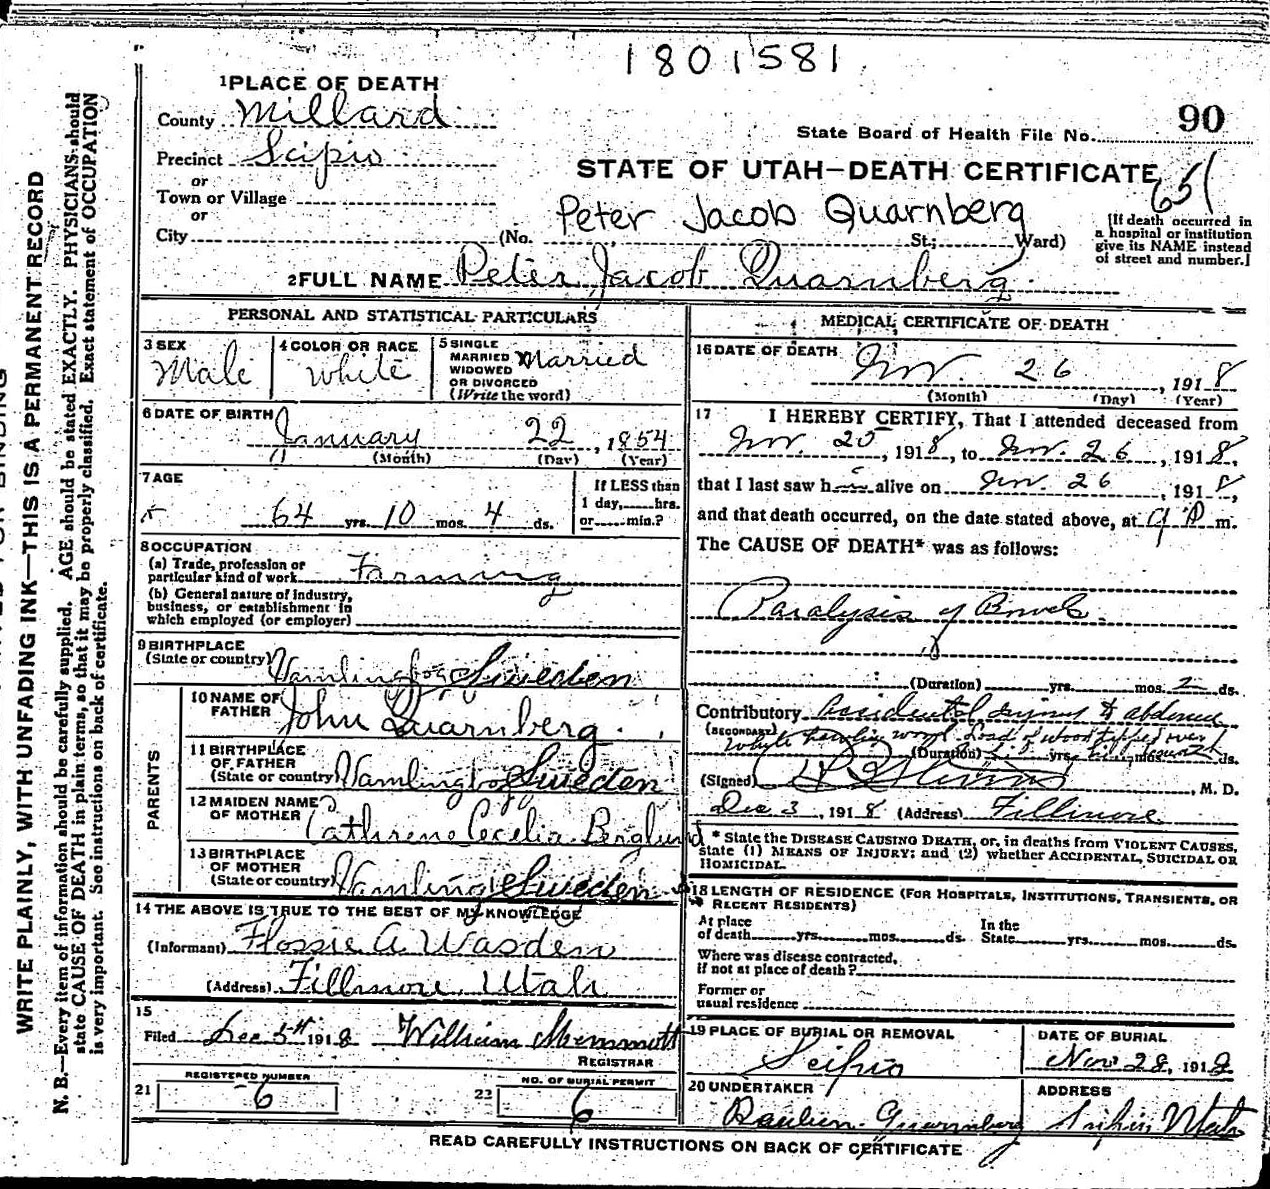 1801581
1 PLACE OF DEATH
County Millard
Precinct Scipio
or
Town or Village
or
City
90
State Board of Health File No.
STATE OF UTAH—DEATH CERTIFICATE
651
Peter Jacob Quarnberg
(No. St.; Ward)
[If death occurred in
a hospital or institution
give its NAME instead
of street and number.]
2 FULL NAME Peter Jacob Quarnberg
PERSONAL AND STATISTICAL PARTICULARS
3 SEX
Male
4 COLOR OR RACE
White
5 SINGLE
MARRIED
WIDOWED
OR DIVORCED
(Write the word)
Married
6 DATE OF BIRTH
January 22, 1854
(Month) (Day) (Year)
7 AGE
64 yrs. 10 mos. 4 ds.
If LESS than
1 day, hrs.
or min.?
8 OCCUPATION
(a) Trade, profession or
particular kind of work Farming
(b) General nature of industry,
business, or establishment in
which employed (or employer)
9 BIRTHPLACE
(State or country) Vamlingbog Sweden
PARENTS
10 NAME OF
FATHER John Quarnberg
11 BIRTHPLACE
OF FATHER
(State or country) Vamlingbog Sweden
12 MAIDEN NAME
OF MOTHER Cathrene Cecelia Berglund
13 BIRTHPLACE
OF MOTHER
(State or country) Sweden
14 THE ABOVE IS TRUE TO THE BEST OF MY KNOWLEDGE
(Informant) Flossie A Wasden
(Address) Fillmore, Utah
15
Filed Dec 5th 1918 William Memmott
REGISTRAR
21 REGISTERED NUMBER
6
22 NO. OF BURIAL PERMIT
6
MEDICAL CERTIFICATE OF DEATH
16 DATE OF DEATH
Nov. 26, 1918
(Month) (Day) (Year)
17 I HEREBY CERTIFY, That I attended deceased from
Nov. 25, 1918, to Nov. 26, 1918,
that I last saw him alive on Nov. 26, 1918,
and that death occurred, on the date stated above, at 9 P m.
The CAUSE OF DEATH* was as follows:
Paralysis of Bowels
(Duration) yrs. mos. 2 ds.
Contributory Accidental injury to abdomen
(SECONDARY) While hauling wood. Load of wood tipped over
(Duration) yrs. mos. ds.
(Signed) M. D.
Dec 3, 1918 (Address) Fillmore
* State the DISEASE CAUSING DEATH, or, in deaths from VIOLENT CAUSES,
state (1) MEANS OF INJURY; and (2) whether ACCIDENTAL, SUICIDAL OR
HOMICIDAL.
18 LENGTH OF RESIDENCE (FOR HOSPITALS, INSTITUTIONS, TRANSIENTS, OR
RECENT RESIDENTS)
At place
of death yrs. mos. ds.
In the
State yrs. mos. ds.
Where was disease contracted,
if not at place of death?
Former or
usual residence
19 PLACE OF BURIAL OR REMOVAL
Scipio
DATE OF BURIAL
Nov 28, 1918
20 UNDERTAKER
Quarnberg
ADDRESS
Scipio Utah
READ CAREFULLY INSTRUCTIONS ON BACK OF CERTIFICATE
WRITE PLAINLY, WITH UNFADING INK—THIS IS A PERMANENT RECORD
N. B.—Every item of information should be carefully supplied. AGE should be stated EXACTLY. PHYSICIANS should
state CAUSE OF DEATH in plain terms, so that it may be properly classified. Exact statement of OCCUPATION
is very important. See instructions on back of certificate.